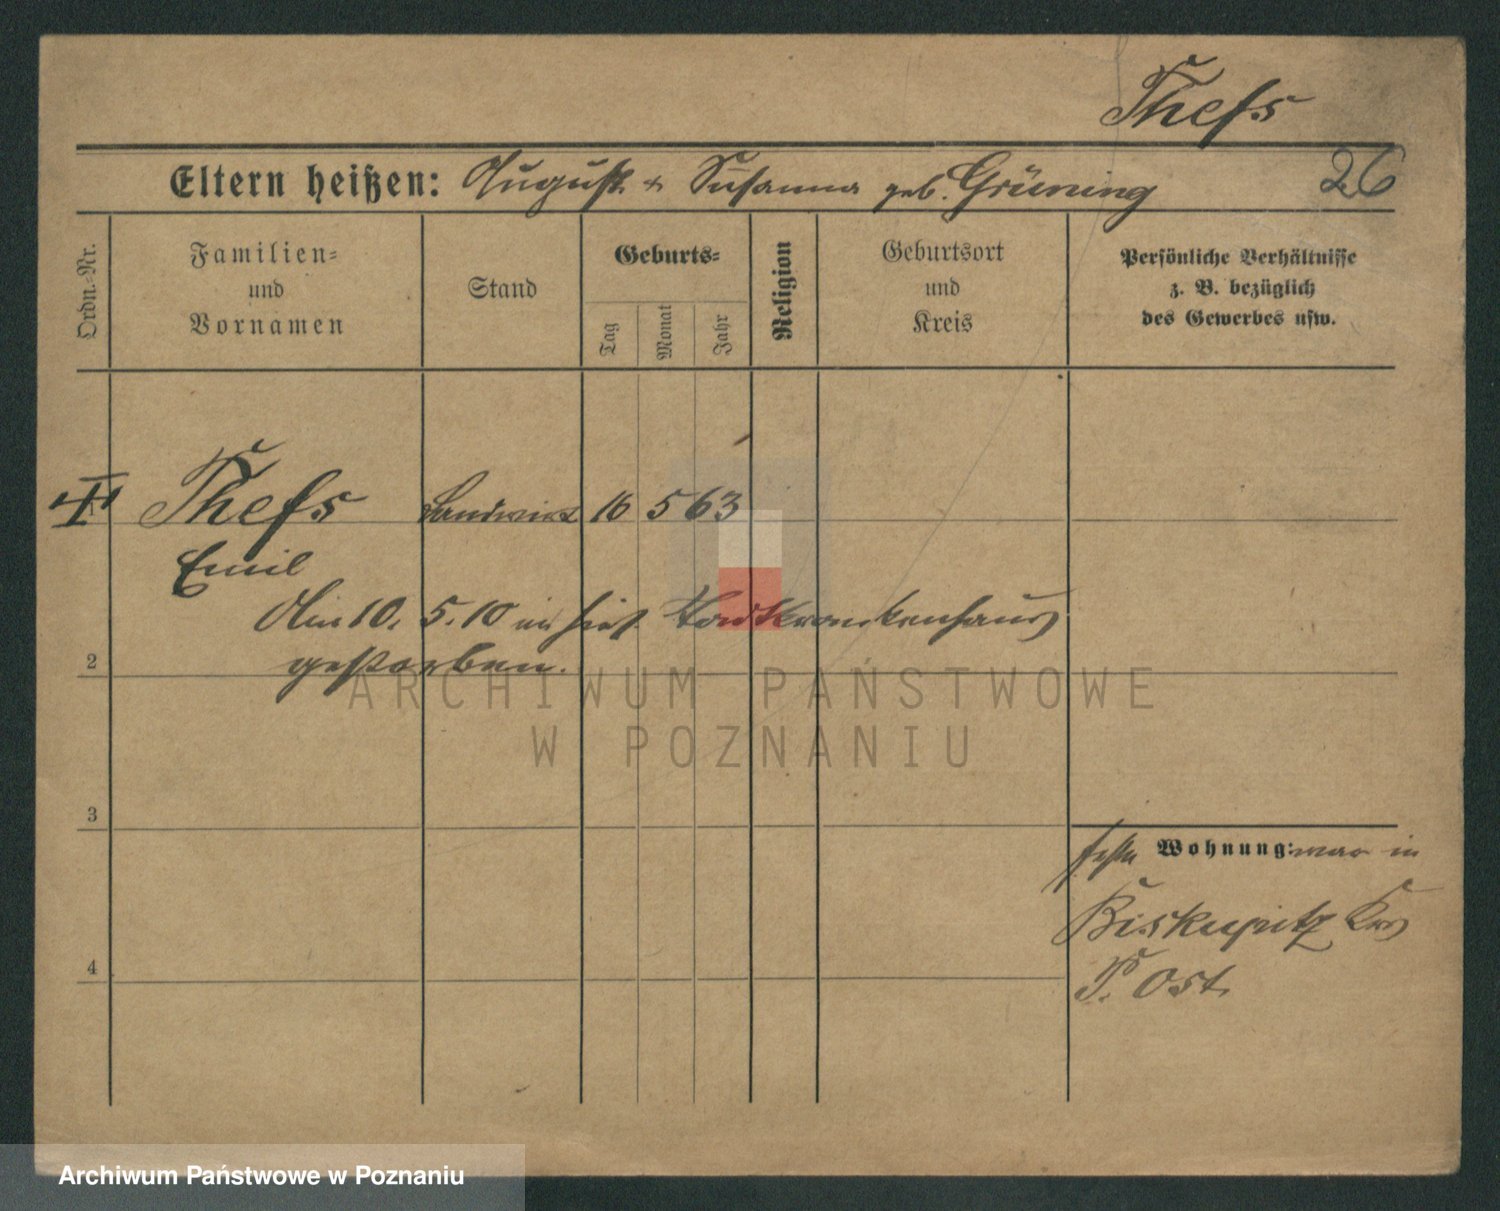 Thefs
Eltern heißen: August + Susanna geb. Grüning 26
Ordn.-Nr.
Familien-
und
Vornamen
Stand
Geburts-
Tag
Monat
Jahr
Religion
Geburtsort
und
Kreis
Persönliche Verhältnisse
z. B. bezüglich
des Gewerbes usw.
Thefs Landwirt 16 5 63
Emil
Am 10. 5. 10 im hies. Stadtkrankenhaus
gestorben.
2
ARCHIWUM PAŃSTWOWE
W POZNANIU
3
Wohnung: war in
Biskupitz Krs
4
P. Ost.
Archiwum Państwowe w Poznaniu